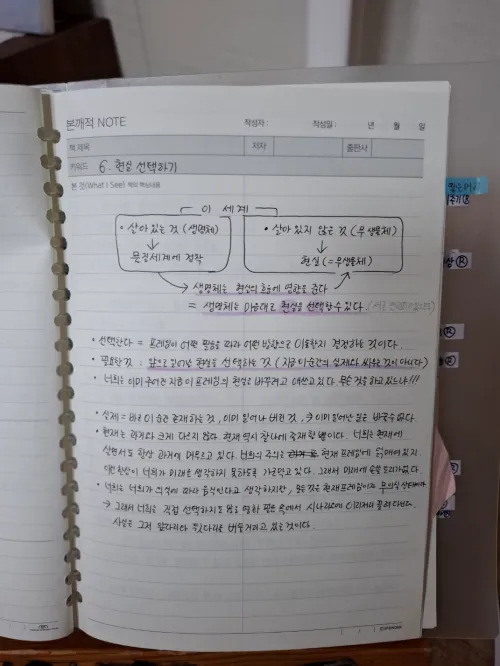 본깨적 NOTE
작성자 : 작성일 : 년 월 일
책 제목 저자 출판사
키워드 6. 현실 선택하기
본 것(What I See) 책의 핵심내용
이 세계
• 살아 있는 것 (생명체) • 살아 있지 않은 것 (무생물체)
↓ ↓
물질세계에 정착 현실 (=무생물체)
→ 생명체는 현실의 흐름에 영향을 준다
= 생명체는 마음대로 현실을 선택할 수 있다
• 선택한다 = 프레임이 어떤 필름을 따라 어떤 방향으로 이동할지 결정하는 것이다.
• 필요한 것 : 앞으로 일어날 현실을 선택하는 것 (지금 이 순간의 실제와 싸우는 것이 아니다)
• 너희는 이미 주어진 지금 이 프레임의 현실을 바꾸려고 애쓰고 있다. 무슨 것을 하고 있느냐!!!
• 실제 = 바로 이 순간 존재하는 것, 이미 일어나 버린 것, 이미 일어난 일은 바꿀 수 없다.
• 현재는 과거와 크게 다르지 않다. 현재 역시 찰나에 존재할 뿐이다. 너희는 현재에
살면서도 항상 과거에 머무르고 있다. 너희의 주의는 현재 프레임에 붙매여 있지.
너희가 미래를 생각하지 못하도록 가로막고 있다. 그래서 미래에 손을 못 대고 있다.
• 너희는 너희가 의식에 따라 움직인다고 생각하지만, 모든 것은 현재 프레임이자 무의식 상태이다
→ 그래서 너희는 직접 선택하지도 않은 영화 필름 속에서 시나리오에 이리저리 끌려다닌다.
사실은 그저 팔다리나 버둥거리고 있는 것이다.